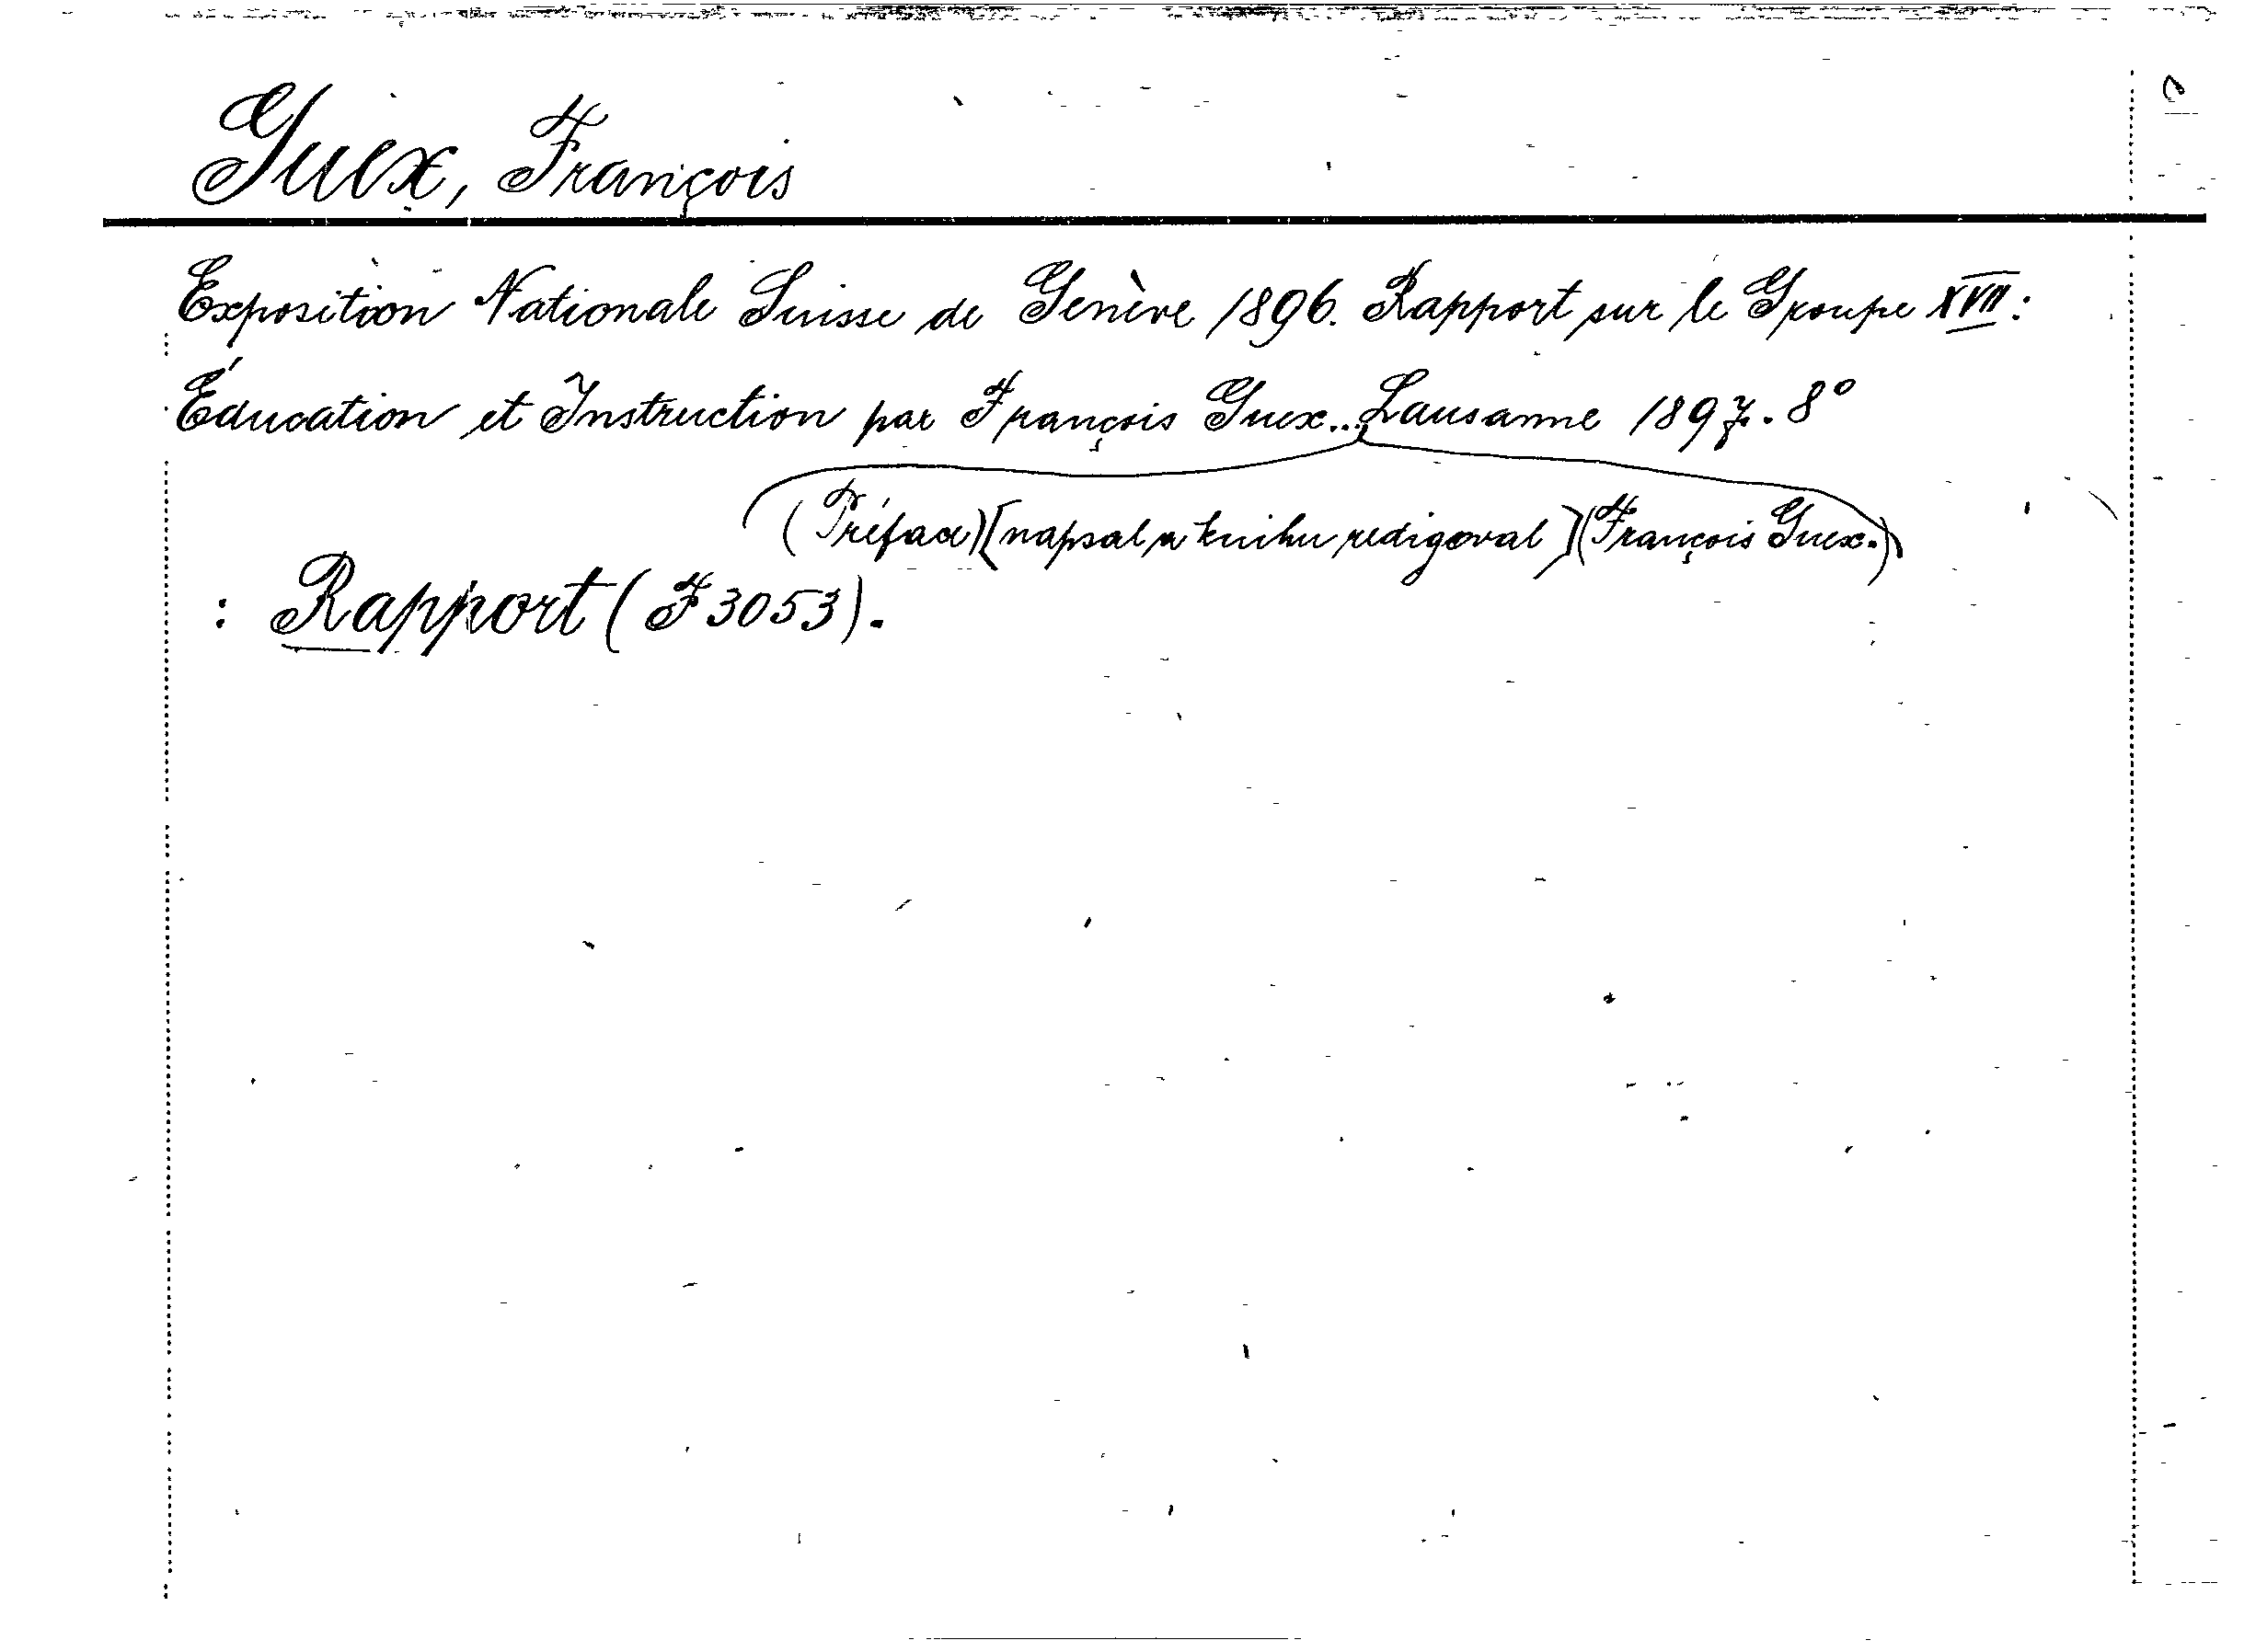 Guex, François
Exposition Nationale Suisse de Genève 1896. Rapport sur le Groupe XVII:
Éducation et Instruction par François Guex... Lausanne 1897. 8°
(Préface)[napsal a knihu redigoval](François Guex.)
: Rapport (F 3053).